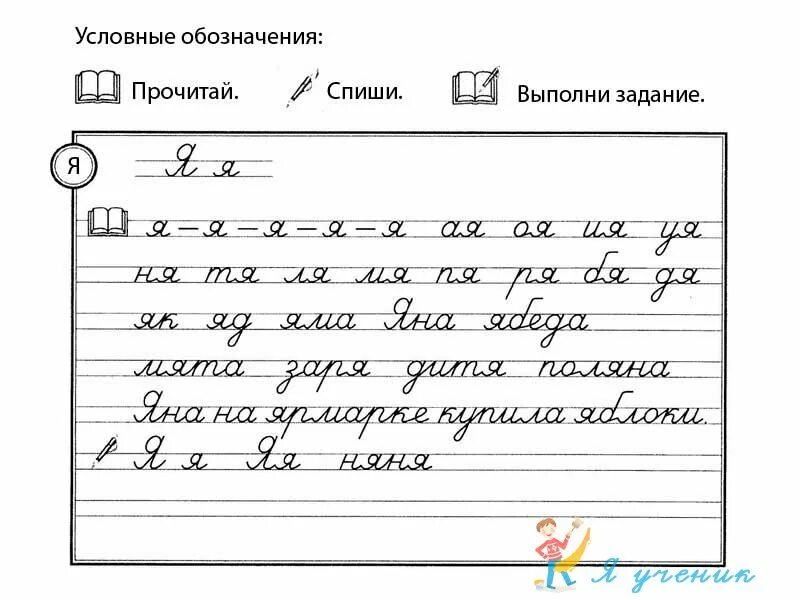 Условные обозначения:
Прочитай. Спиши. Выполни задание.
Я Я я
я – я – я – я – я ая оя ия уя
ня тя ля мя пя ря бя дя
як яд яма Яна ябеда
мята заря дитя поляна
Яна на ярмарке купила яблоки.
Я я Яя няня
Я ученик